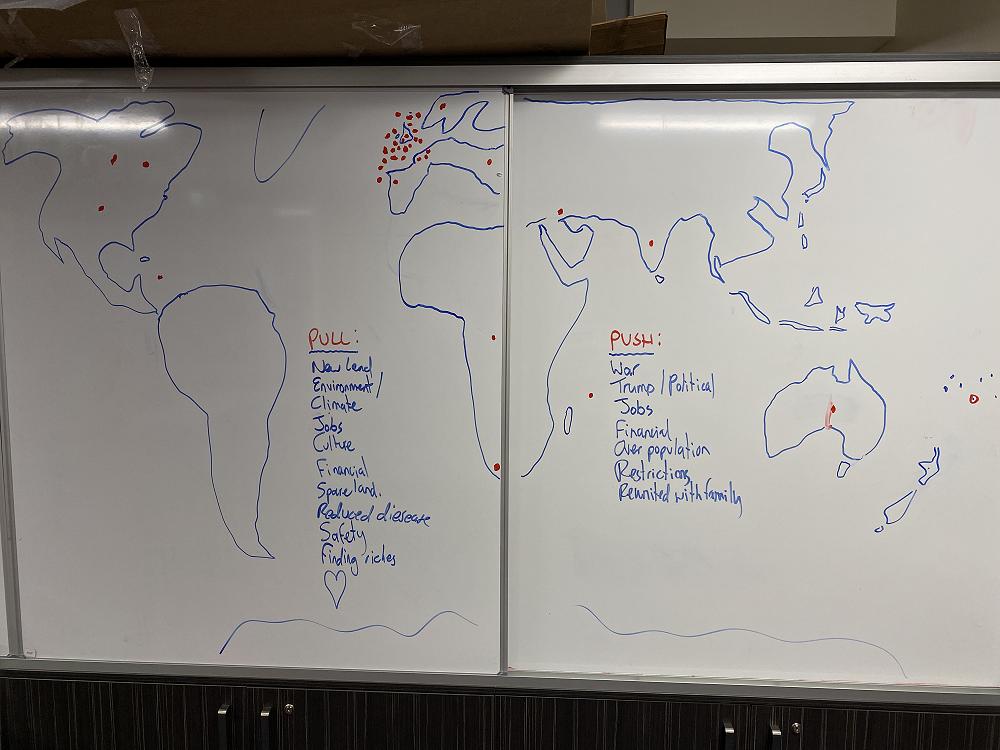 PULL:
New land
Environment/
Climate
Jobs
Culture
Financial
Spare land.
Reduced diesease
Safety
Finding riches
PUSH:
War
Trump / Political
Jobs
Financial
Over population
Restrictions
Reunited with family